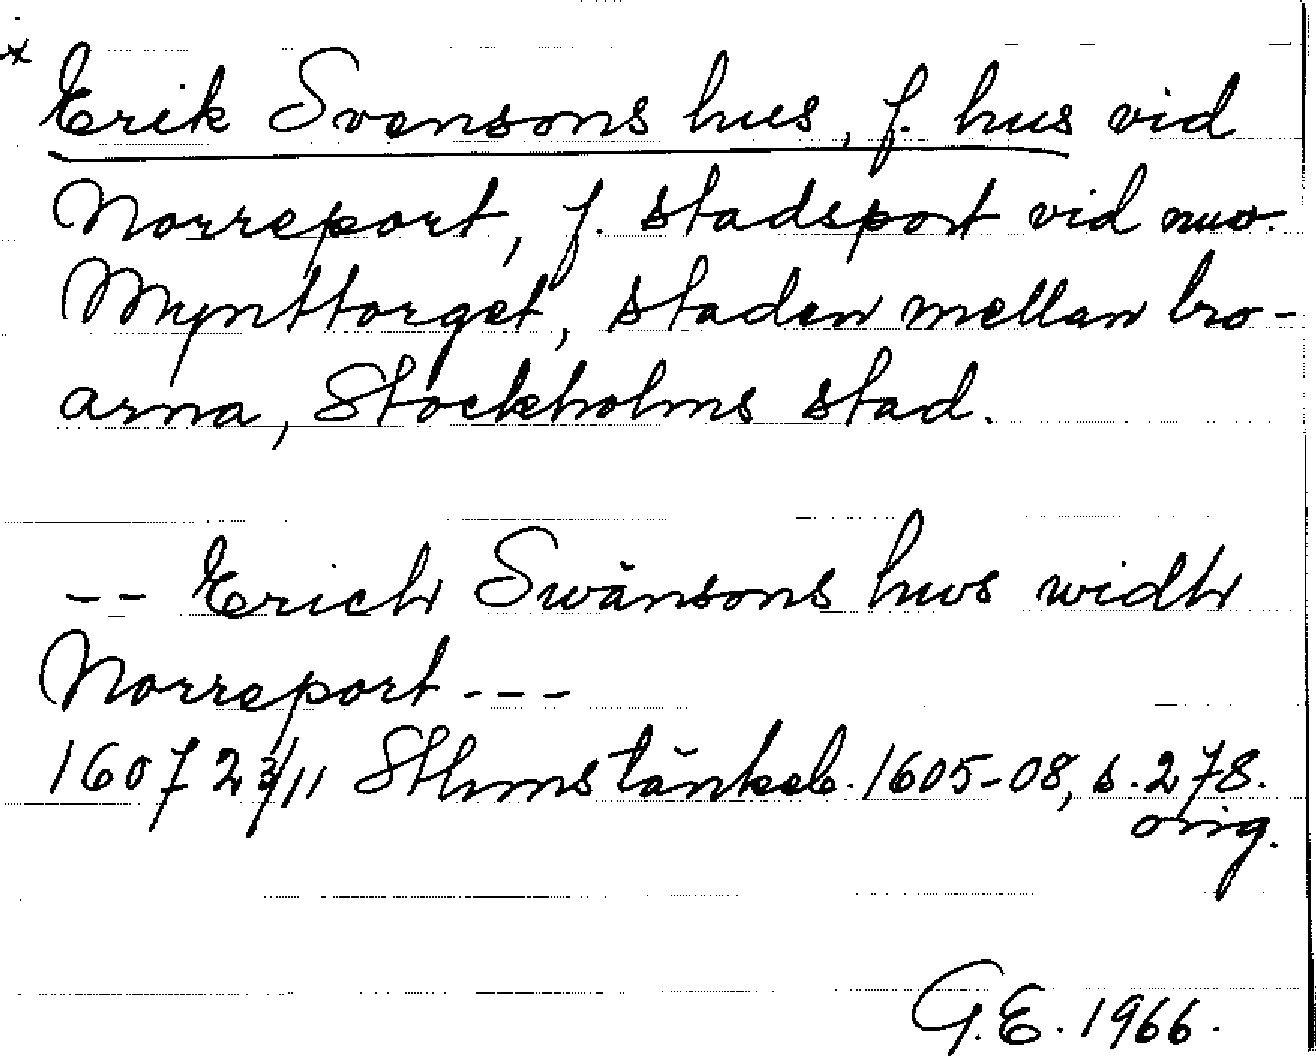 * Erik Svensons hus, f. hus vid
Norreport, f. stadsport vid nuv.
Mynttorget, staden mellan bro-
arna, Stockholms stad.
-- Erich Swänsons hws widh
Norreport ---
1607 23/11 Sthms tänkeb. 1605-08, s. 278.
orig.
G.E. 1966.